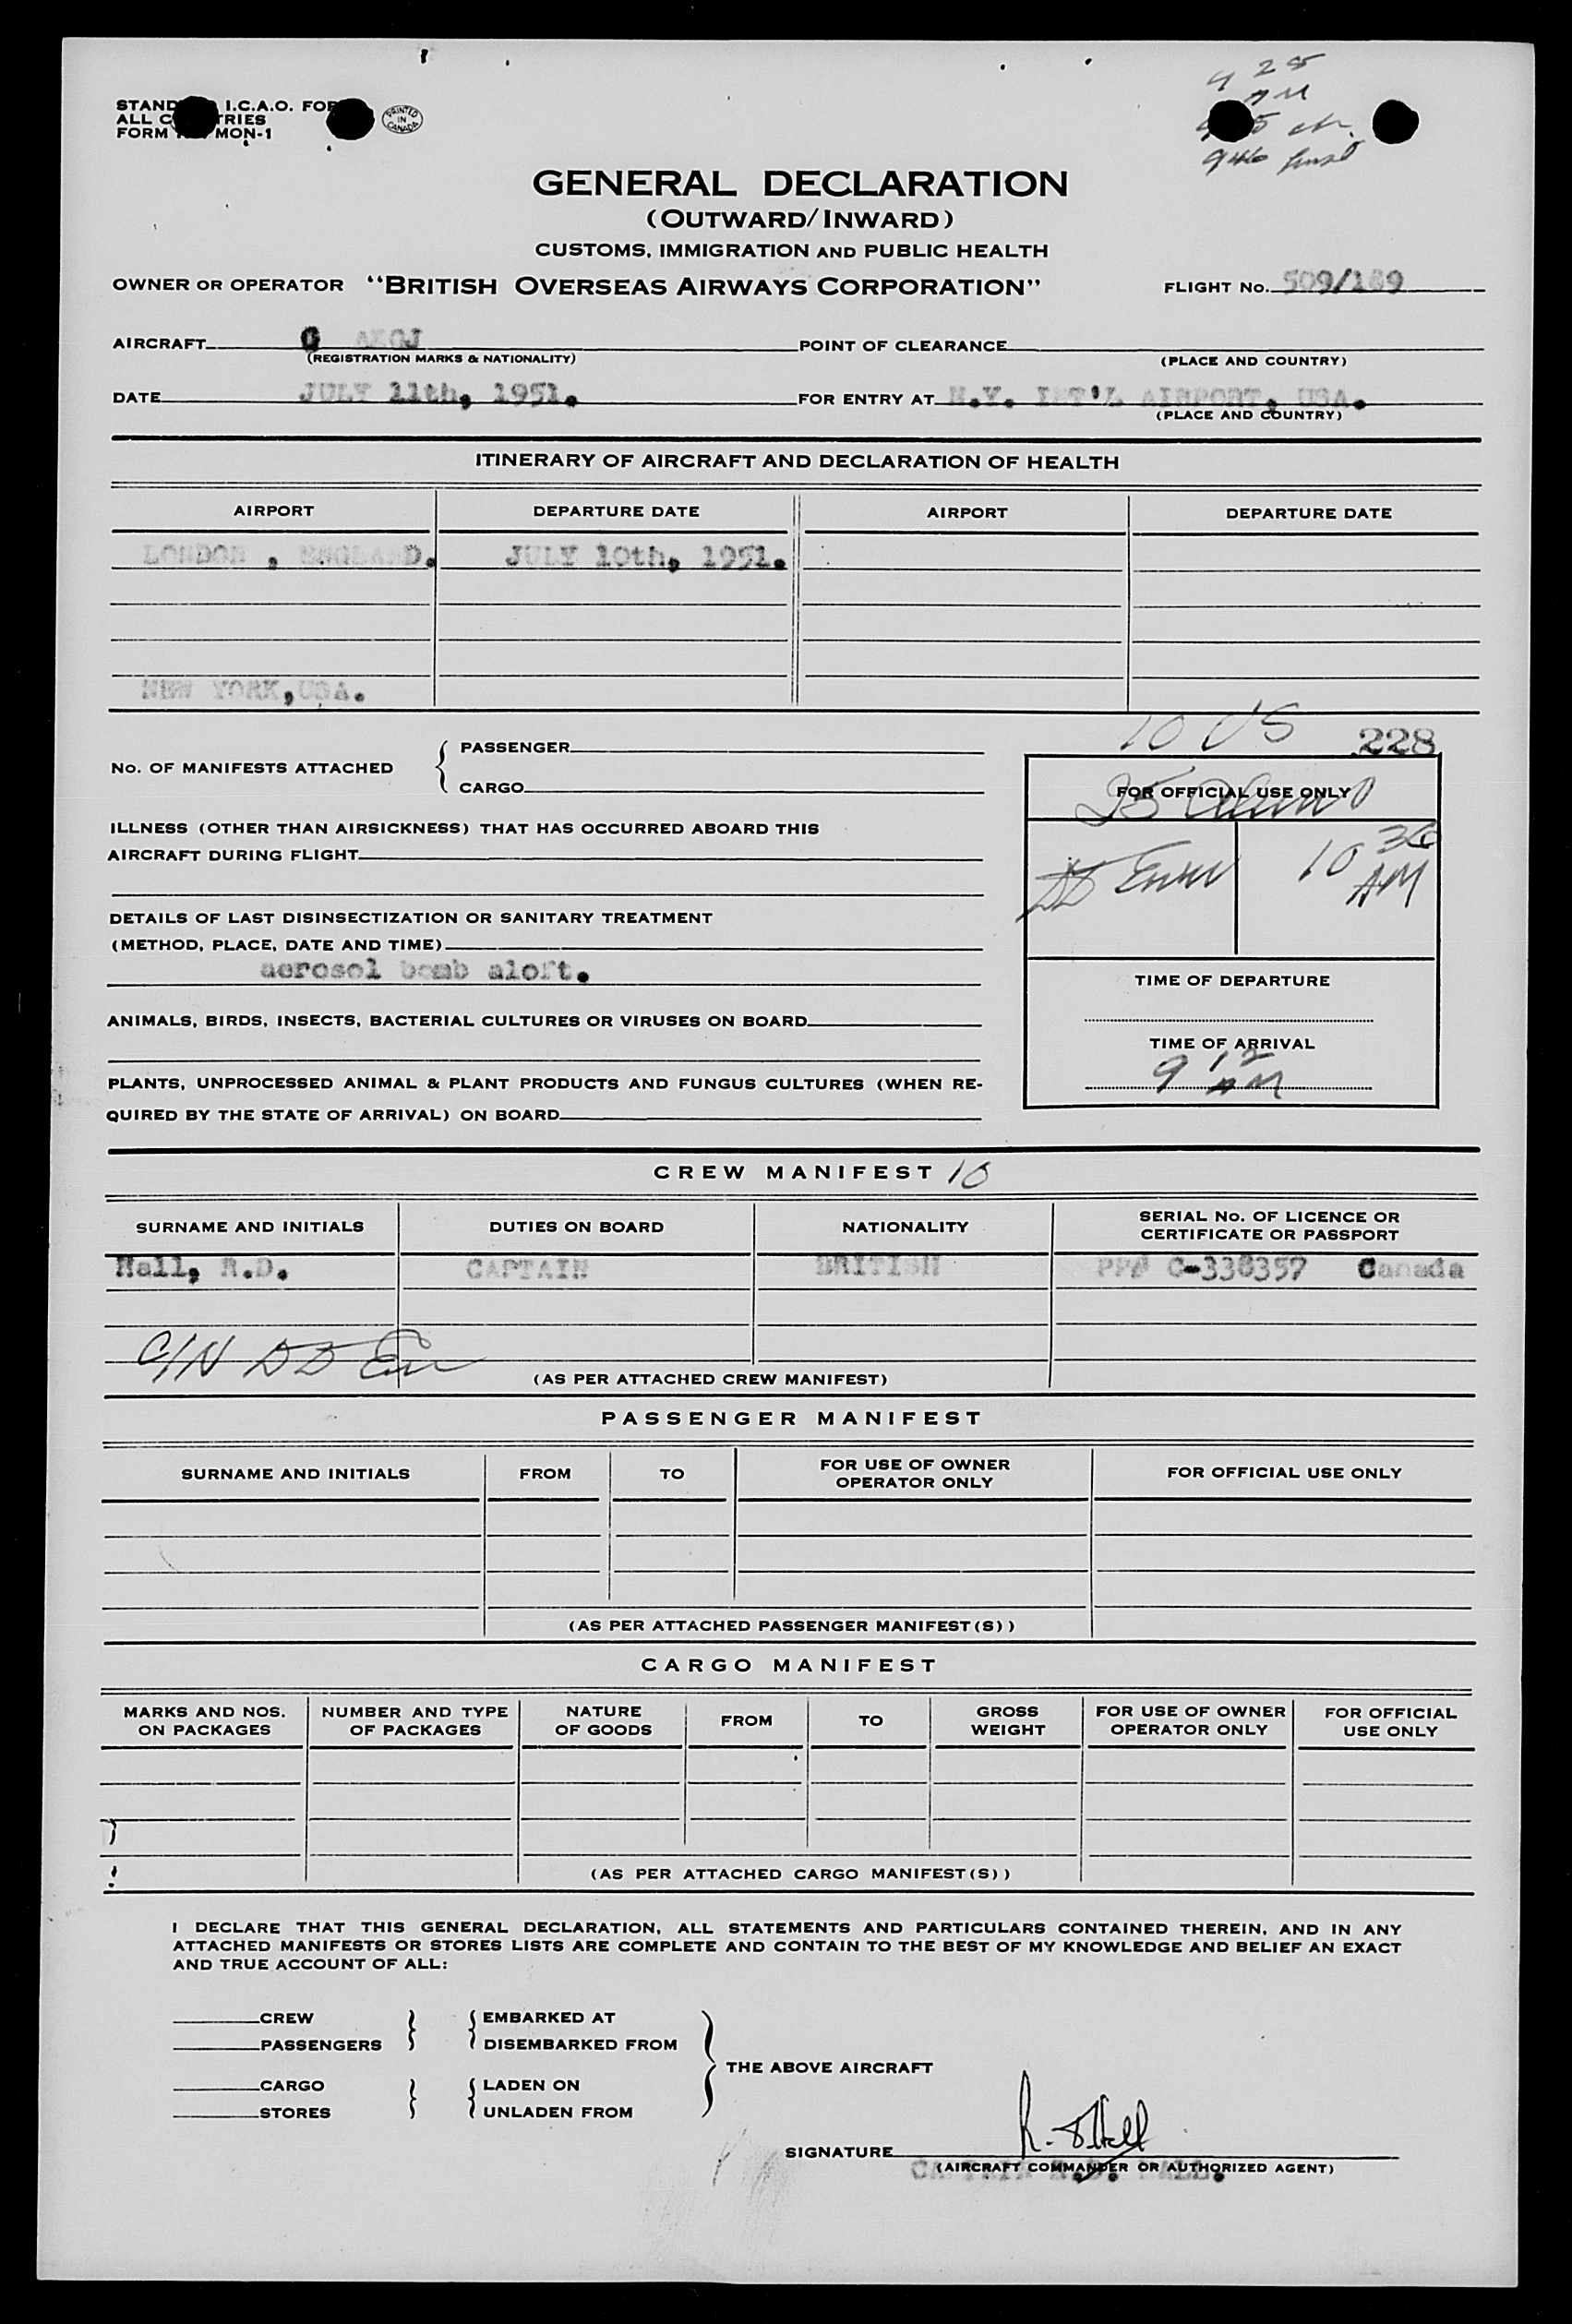 I.C.A.O.
ALL
FORM MON-1
PRINTED IN CANADA
9 25
AM
946
GENERAL DECLARATION
(OUTWARD/INWARD)
CUSTOMS, IMMIGRATION AND PUBLIC HEALTH
OWNER OR OPERATOR "BRITISH OVERSEAS AIRWAYS CORPORATION" FLIGHT No. 509/189
AIRCRAFT G AKGJ POINT OF CLEARANCE
(REGISTRATION MARKS & NATIONALITY) (PLACE AND COUNTRY)
DATE JULY 11th, 1951. FOR ENTRY AT N.Y. INT'L AIRPORT, USA.
(PLACE AND COUNTRY)
ITINERARY OF AIRCRAFT AND DECLARATION OF HEALTH
AIRPORT DEPARTURE DATE AIRPORT DEPARTURE DATE
LONDON , ENGLAND. JULY 10th, 1951.
NEW YORK, USA.
10 US 228
No. OF MANIFESTS ATTACHED { PASSENGER
CARGO
FOR OFFICIAL USE ONLY
25
ILLNESS (OTHER THAN AIRSICKNESS) THAT HAS OCCURRED ABOARD THIS
AIRCRAFT DURING FLIGHT
10 36
AM
DETAILS OF LAST DISINSECTIZATION OR SANITARY TREATMENT
(METHOD, PLACE, DATE AND TIME)
aerosol bomb aloft.
TIME OF DEPARTURE
ANIMALS, BIRDS, INSECTS, BACTERIAL CULTURES OR VIRUSES ON BOARD
TIME OF ARRIVAL
9 12
AM
PLANTS, UNPROCESSED ANIMAL & PLANT PRODUCTS AND FUNGUS CULTURES (WHEN RE-
QUIRED BY THE STATE OF ARRIVAL) ON BOARD
CREW MANIFEST 10
SURNAME AND INITIALS DUTIES ON BOARD NATIONALITY SERIAL No. OF LICENCE OR
CERTIFICATE OR PASSPORT
Hall, R.D. CAPTAIN BRITISH PP# C-338357 Canada
(AS PER ATTACHED CREW MANIFEST)
PASSENGER MANIFEST
SURNAME AND INITIALS FROM TO FOR USE OF OWNER
OPERATOR ONLY FOR OFFICIAL USE ONLY
(AS PER ATTACHED PASSENGER MANIFEST(S))
CARGO MANIFEST
MARKS AND NOS. NUMBER AND TYPE NATURE FROM TO GROSS FOR USE OF OWNER FOR OFFICIAL
ON PACKAGES OF PACKAGES OF GOODS WEIGHT OPERATOR ONLY USE ONLY
(AS PER ATTACHED CARGO MANIFEST(S))
I DECLARE THAT THIS GENERAL DECLARATION, ALL STATEMENTS AND PARTICULARS CONTAINED THEREIN, AND IN ANY
ATTACHED MANIFESTS OR STORES LISTS ARE COMPLETE AND CONTAIN TO THE BEST OF MY KNOWLEDGE AND BELIEF AN EXACT
AND TRUE ACCOUNT OF ALL:
CREW EMBARKED AT
PASSENGERS DISEMBARKED FROM
THE ABOVE AIRCRAFT
CARGO LADEN ON
STORES UNLADEN FROM
SIGNATURE R. D Hall
(AIRCRAFT COMMANDER OR AUTHORIZED AGENT)
CAPTAIN R.D. HALL.